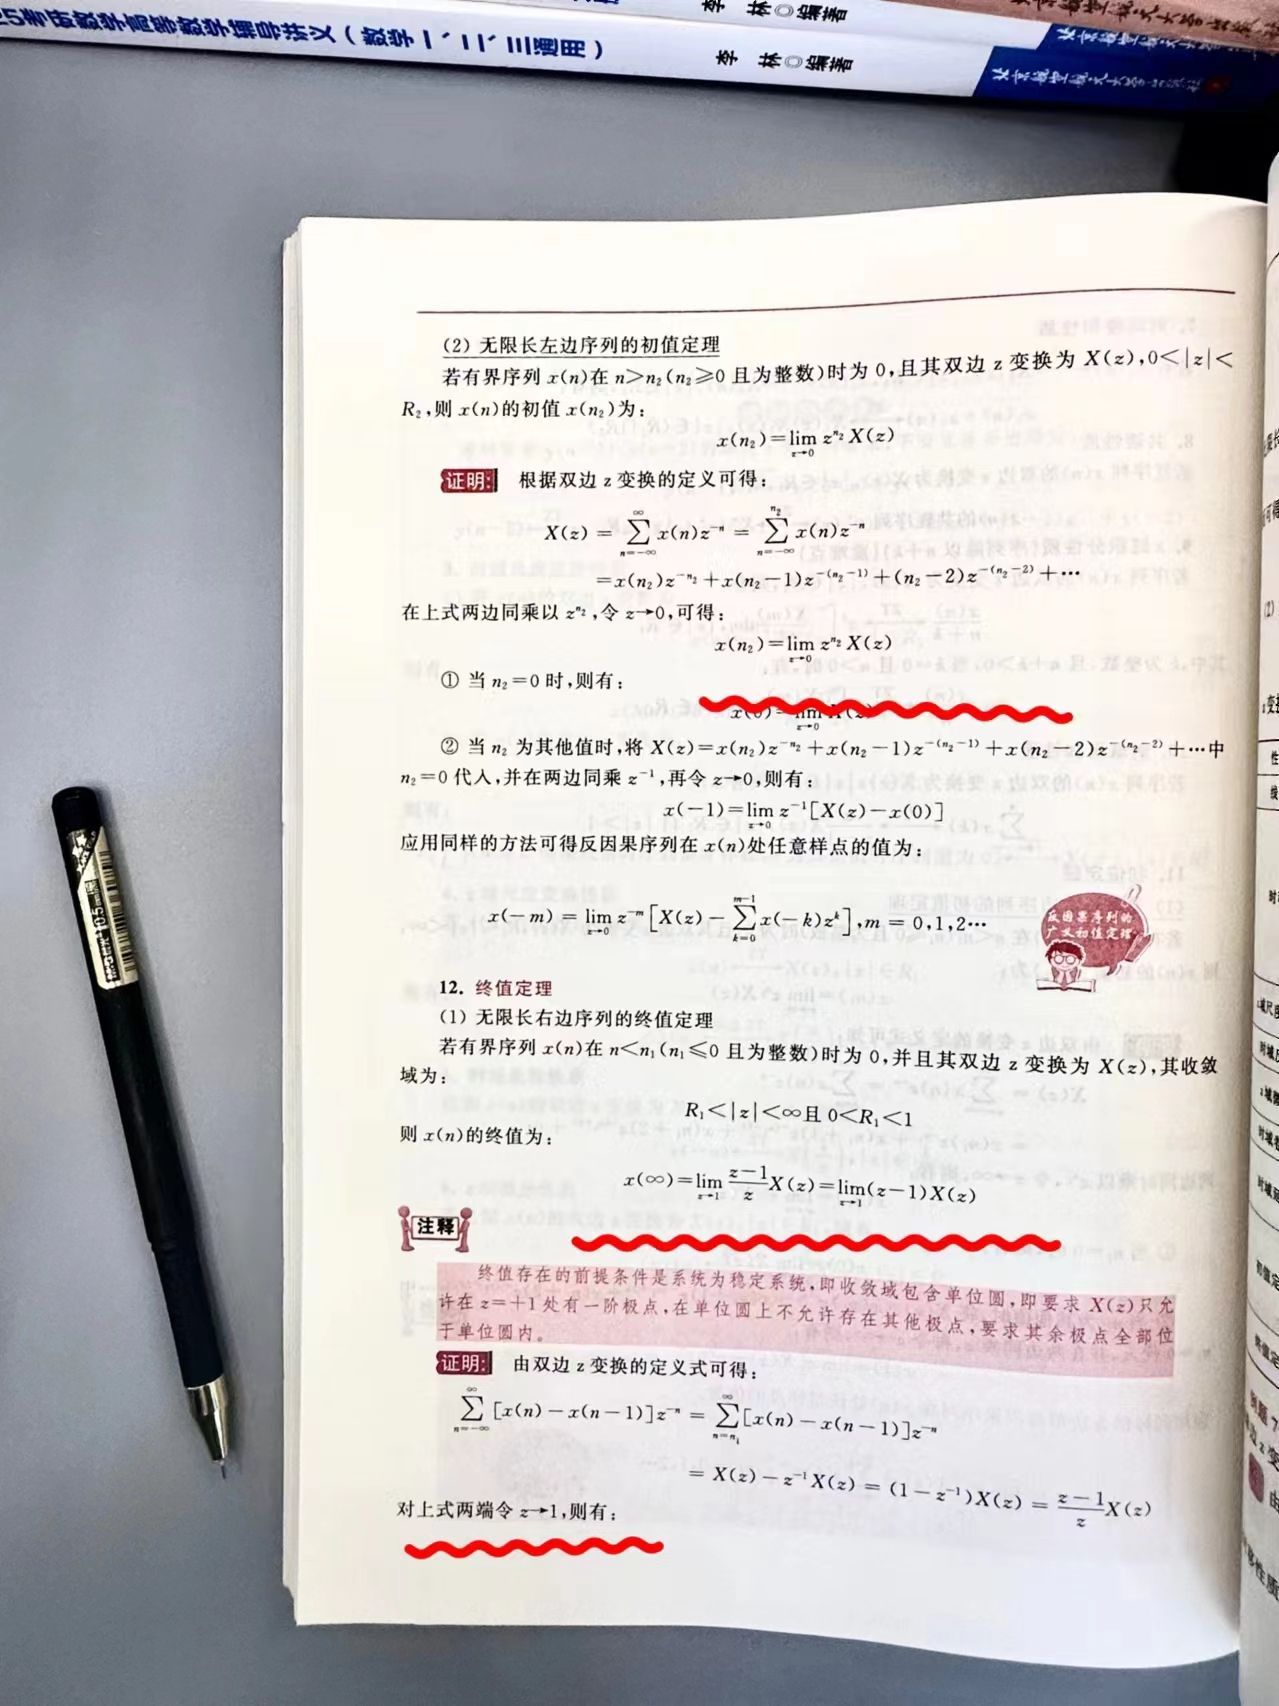 考研数学高等数学辅导讲义（数学一、二、三通用）
李 林◎编著
李 林◎编著
(2) 无限长左边序列的初值定理
若有界序列 x(n)在 n>n₂(n₂⩾0 且为整数)时为 0,且其双边 z 变换为 X(z),0<|z|<
R₂,则 x(n)的初值 x(n₂)为:
x(n₂)=lim_{z→0} z^{n₂} X(z)
证明: 根据双边 z 变换的定义可得:
X(z) = ∑_{n=-∞}^{∞} x(n)z^{-n} = ∑_{n=-∞}^{n₂} x(n)z^{-n}
=x(n₂)z^{-n₂}+x(n₂-1)z^{-(n₂-1)}+(n₂-2)z^{-(n₂-2)}+⋯
在上式两边同乘以 z^{n₂},令 z→0,可得:
x(n₂)=lim_{z→0} z^{n₂} X(z)
① 当 n₂=0 时,则有:
x(0)=lim_{z→0} X(z)
② 当 n₂ 为其他值时,将 X(z)=x(n₂)z^{-n₂}+x(n₂-1)z^{-(n₂-1)}+x(n₂-2)z^{-(n₂-2)}+⋯中
n₂=0 代入,并在两边同乘 z^{-1},再令 z→0,则有:
x(-1)=lim_{z→0} z^{-1}[X(z)-x(0)]
应用同样的方法可得反因果序列在 x(n)处任意样点的值为:
x(-m) = lim_{z→0} z^{-m}[X(z)-∑_{k=0}^{m-1}x(-k)z^{k}],m = 0,1,2⋯
反因果序列的
广义初值定理
12. 终值定理
(1) 无限长右边序列的终值定理
若有界序列 x(n)在 n<n₁(n₁⩽0 且为整数)时为 0,并且其双边 z 变换为 X(z),其收敛
域为:
R₁<|z|<∞且 0<R₁<1
则 x(n)的终值为:
x(∞)=lim_{z→1} \frac{z-1}{z}X(z)=lim_{z→1}(z-1)X(z)
注释
终值存在的前提条件是系统为稳定系统,即收敛域包含单位圆,即要求 X(z)只允
许在 z=+1 处有一阶极点,在单位圆上不允许存在其他极点,要求其余极点全部位
于单位圆内。
证明: 由双边 z 变换的定义式可得:
∑_{n=-∞}^{∞} [x(n)-x(n-1)]z^{-n} = ∑_{n=n₁}^{∞}[x(n)-x(n-1)]z^{-n}
= X(z)-z^{-1}X(z) = (1-z^{-1})X(z) = \frac{z-1}{z}X(z)
对上式两端令 z→1,则有: